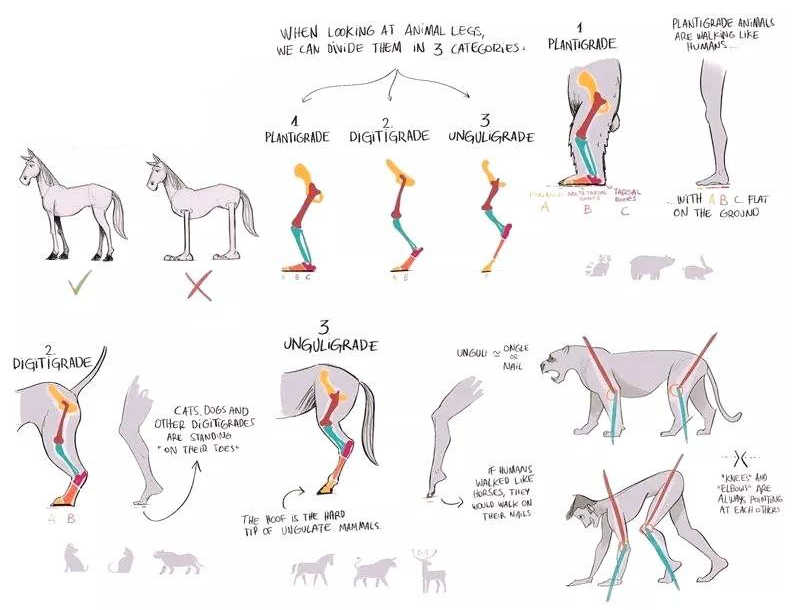 WHEN LOOKING AT ANIMAL LEGS,
WE CAN DIVIDE THEM IN 3 CATEGORIES.
1
PLANTIGRADE
2
DIGITIGRADE
3
UNGULIGRADE
A B C
A B
A
1
PLANTIGRADE
PHALANGES
A
METATARSAL
BONES
B
TARSAL
BONES
C
PLANTIGRADE ANIMALS
ARE WALKING LIKE
HUMANS...
..WITH A B C FLAT
ON THE GROUND
2
DIGITIGRADE
A B
CATS, DOGS AND
OTHER DIGITIGRADES
ARE STANDING
"ON THEIR TOES"
3
UNGULIGRADE
THE HOOF IS THE HARD
TIP OF UNGULATE MAMMALS
UNGULI ≃ ONGLE
OR
NAIL
IF HUMANS
WALKED LIKE
HORSES, THEY
WOULD WALK ON
THEIR NAILS
"KNEES" AND
"ELBOWS" ARE
ALWAYS POINTING
AT EACH OTHERS